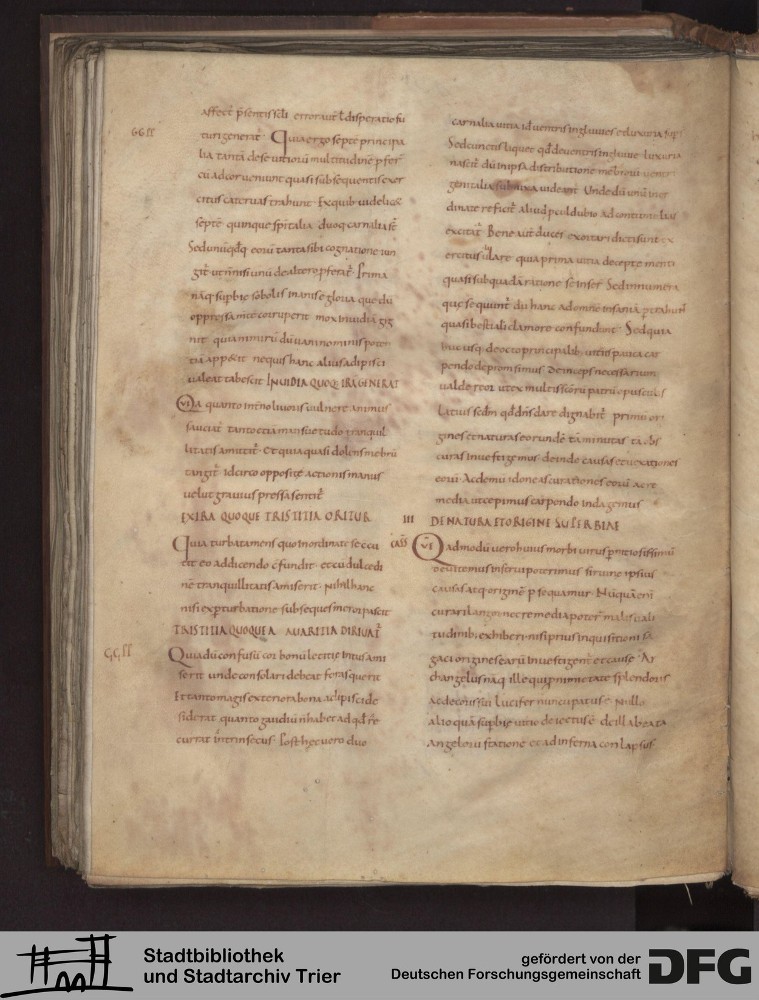 affect p̄sentis scł̄i error aut ł disperatio fu
GGLL
turi generat̄ Quia ergo septē principa
lia tantā de se vitiorū multitudinē p̄fer
cū ad cor veniunt quasi subsequentis exer
citus catervas trahunt Ex quib: videlic&
septē quinque sp̄italia duoq carnalia st̄
Sed unūq̄dq eorū tanta sibi cognatione iun
git̄ ut nisi unū de altero pferat̄ Prima
nāq supbie sobolis inanis ē gloria que dū
oppressā mēte corruperit mox invidiā gig
nit quia nimirū dū vani nominis poten
tiā appetit ne quis hanc alius adipisci
valeat tabescit INVIDIA QUOQ: IRĀ GENERAT
QVIA quanto int̄no livoris vulnere animus
sauciat̄ tanto etiā mansuetudo tranquil
litatis amittit̄ Et quia quasi dolens mēbrū
tangit̄ idcirco opposite actionis manus
velut gravius pressa sentit̄
EXIRA QUOQUE TRISTITIA ORITUR
Quia turbata mens quo inordinate se cōcu
tit eo addicendo cōfundit et cū dulcedi
nē tranquillitatis amiserit Nihil hanc
nisi ex pturbatione subsequens meror pascit
TRISTITIA QUOQUE A AVARITIA DIRIVAT̄
GGLL
Quia dū confusū cor bonū letitie intus ami
serit unde consolari debeat foras querit
Et tanto magis exteriora bona adipisci de
siderat quanto gaudiū n̄ habet ad qd̄ re
currat intrinsecus Post hec vero duo
carnalia vitia id ē ventris ingluvies et luxuria sup
Sed cunctis liquet qd̄ de ventris ingluvie luxuria
nascit̄ dū in ipsa distributione mēbrorū ventri
genitalia subnixa videant̄ Unde dū unū inor
dinate reficit̄ aliud pculdubio ad contumelias
excitat̄ Bene aut̄ duces exortari dicti sunt ex
ercitus ululare quia prima vitia decepte menti
quasi sub quadā ratione se inser Sed innumera
que sequunt̄ dū hanc ad omnē insaniā ptrahunt
quasi bestiali clamore confundunt Sed quia
huc usq de octo principalib: vitiis pauca car
pendo depromsimus deinceps necessarium
valde reor ut ex multissorū patrū opusculis
latius sedm̄ qd̄ dn̄s dare dignabit̄ primū ori
gines et naturas eorundē tā minutas tā obs
curas investigemus deinde causas et vexationes
eorū Ac demū idoneas curationes eorū ac re
media ut cepimus carpendo indagemus
III DE NATURA ET ORIGINE SUPERBIAE
CASS QVĒ Admodū vero huius morbi virus pnitiosissimū
devitemus in ferū poterimus si ruine ipsius
causas atq originē psequamur Nūquā enī
curari langor nec remedia poter malis vali
tudinib: exhiberi nisi prius inquisitioni sa
gaci origines earū investigent̄ et cause Ar
changelus nāq ille qui p nimietate splendoris
ac decoris sui Lucifer nuncupatus ē Nullo
alio quā supbie vitio deiectus ē de illa beata
angelorū statione et ad inferna con lapsus
Stadtbibliothek
und Stadtarchiv Trier
gefördert von der
Deutschen Forschungsgemeinschaft
DFG